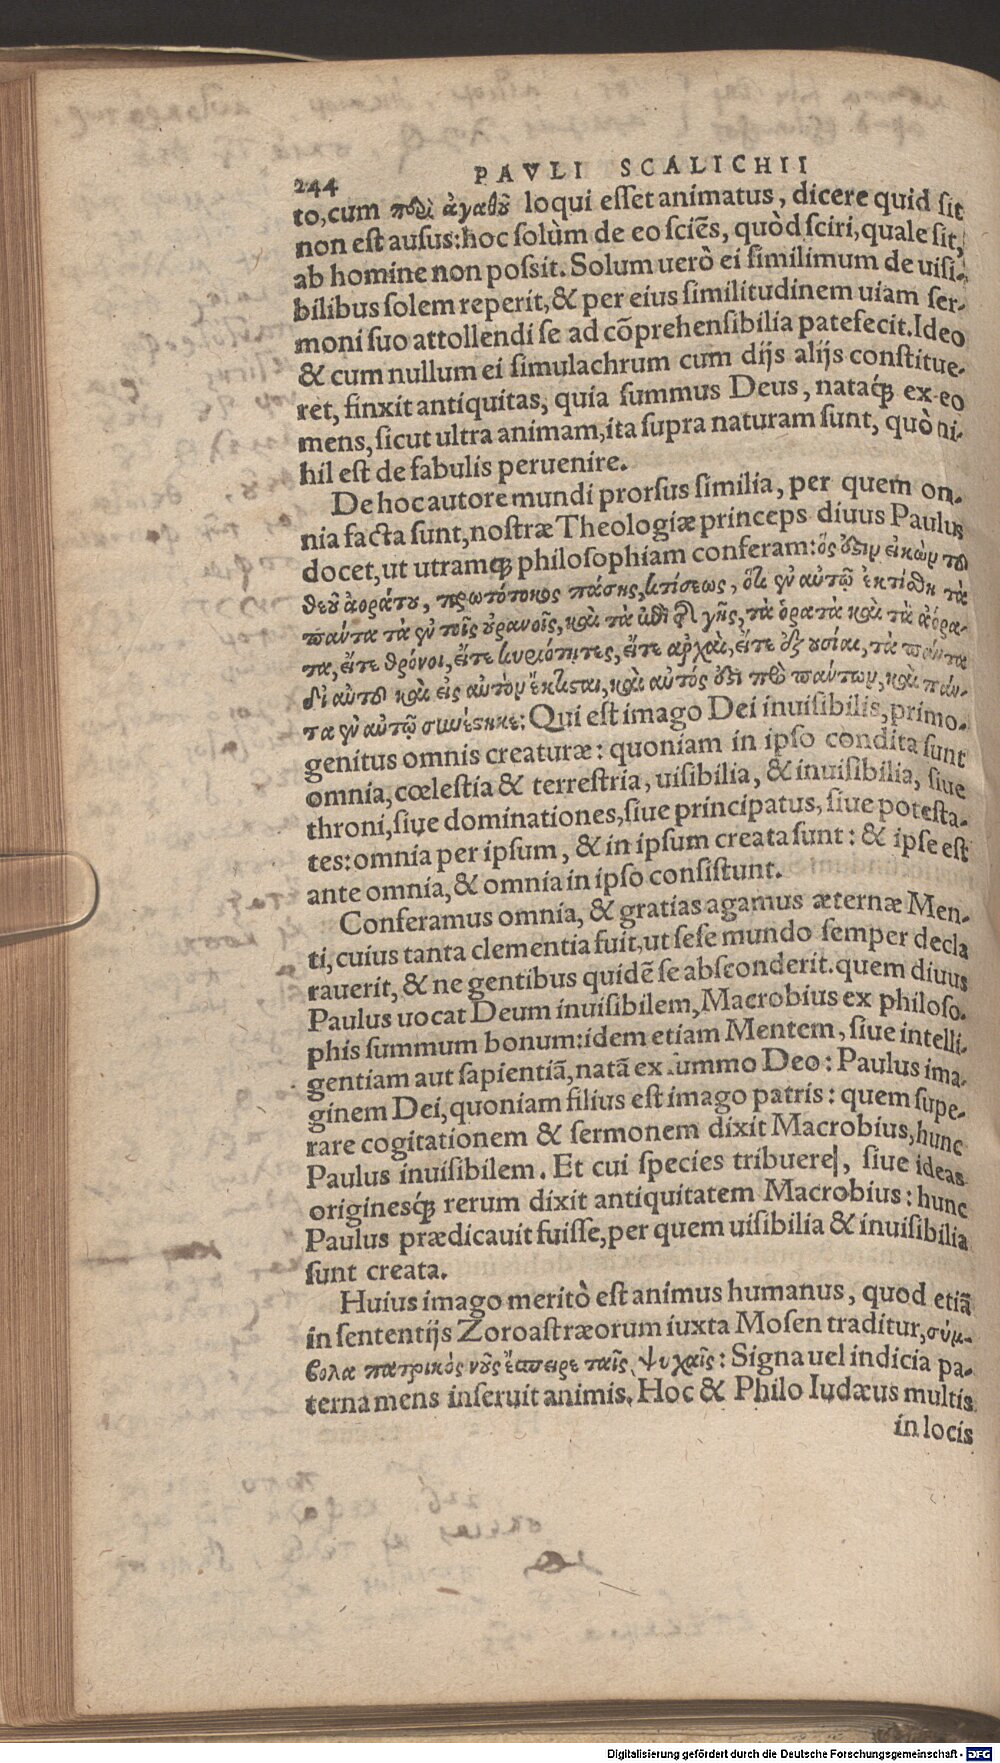 244 PAVLI SCALICHII
to, cum περὶ ἀγαθοῦ loqui esset animatus, dicere quid sit
non est ausus: hoc solùm de eo sciẽs, quòd sciri, quale sit,
ab homine non possit. Solum uerò ei similimum de uisi-
bilibus solem reperit, & per eius similitudinem uiam ser-
moni suo attollendi se ad cõprehensibilia patefecit. Ideo
& cum nullum ei simulachrum cum dijs alijs constitue-
ret, finxit antiquitas, quia summus Deus, nataq́; ex eo
mens, sicut ultra animam, ita supra naturam sunt, quò ni-
hil est de fabulis peruenire.
De hoc autore mundi prorsus similia, per quem om-
nia facta sunt, nostræ Theologiæ princeps diuus Paulus
docet, ut utramq; philosophiam conferam: ὅς ὅξιν εἰκὼν τοῦ
θεοῦ ἀοράτου, πρωτότοκος πάσης κτίσεως, ὅτι ἐν αὐτῷ ἐκτίσθη τὰ
πάντα τὰ ἐν τοῖς οὐρανοῖς, καὶ τὰ ἐπὶ τῆς γῆς, τὰ ὁρατὰ καὶ τὰ ἀόρα-
τα, εἴτε θρόνοι, εἴτε κυριότητες, εἴτε ἀρχαὶ, εἴτε ἐξουσίαι, τὰ πάντα
δι αὐτοῦ καὶ εἰς αὐτὸν ἔκτισται, καὶ αὐτός ἐστι πρὸ πάντων, καὶ πάν-
τα ἐν αὐτῷ συνέστηκε: Qui est imago Dei inuisibilis, primo-
genitus omnis creaturæ: quoniam in ipso condita sunt
omnia, cœlestia & terrestria, uisibilia, & inuisibilia, siue
throni, siue dominationes, siue principatus, siue potesta-
tes: omnia per ipsum, & in ipsum creata sunt: & ipse est
ante omnia, & omnia in ipso consistunt.
Conferamus omnia, & gratias agamus æternæ Men-
ti, cuius tanta clementia fuit, ut sese mundo semper decla
rauerit, & ne gentibus quidẽ se absconderit. quem diuus
Paulus uocat Deum inuisibilem, Macrobius ex philoso-
phis summum bonum: idem etiam Mentem, siue intelli-
gentiam aut sapientiã, natã ex summo Deo: Paulus ima-
ginem Dei, quoniam filius est imago patris: quem supe-
rare cogitationem & sermonem dixit Macrobius, hunc
Paulus inuisibilem. Et cui species tribuere, siue ideas
originesq́; rerum dixit antiquitatem Macrobius: hunc
Paulus prædicauit fuisse, per quem uisibilia & inuisibilia
sunt creata.
Huius imago meritò est animus humanus, quod etiã
in sententijs Zoroastræorum iuxta Mosen traditur, σύμ-
βολα πατρικὸς νοῦς ἔσπειρε ταῖς ψυχαῖς: Signa uel indicia pa-
terna mens inseruit animis. Hoc & Philo Iudæus multis
in locis
Digitalisierung gefördert durch die Deutsche Forschungsgemeinschaft - DFG